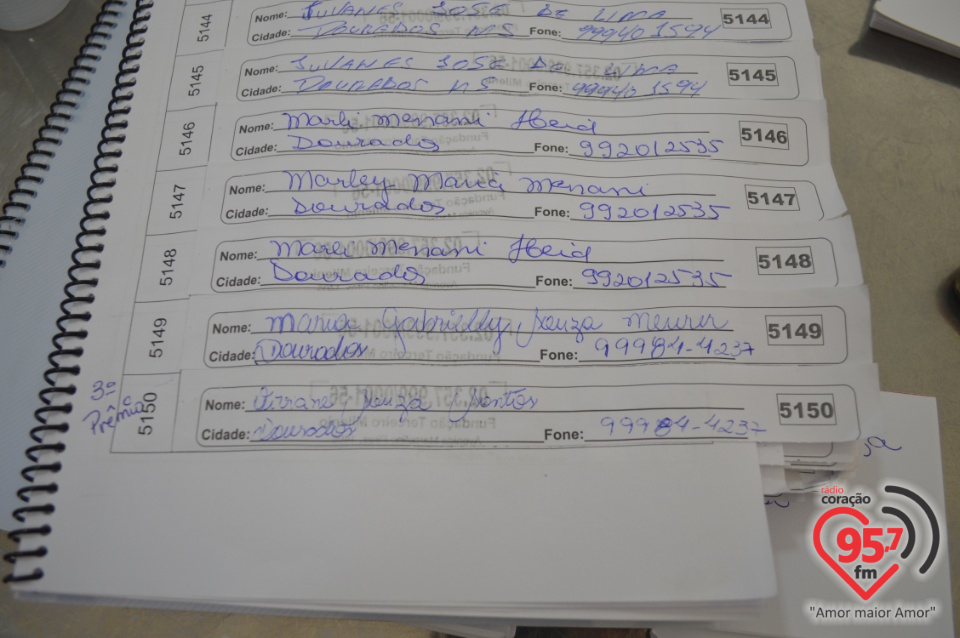 5144 Nome: JUVANES JOSE DE LIMA 5144
Cidade: DOURADOS MS Fone: 999401594
5145 Nome: JUVANES JOSE DE LIMA 5145
Cidade: DOURADOS MS Fone: 999401594
5146 Nome: Marli Menani Heid 5146
Cidade: Dourados Fone: 992012535
5147 Nome: Marley Maria Menani 5147
Cidade: Dourados Fone: 992012535
5148 Nome: Marli Menani Heid 5148
Cidade: Dourados Fone: 992012535
5149 Nome: Maria Gabrielly Souza Meurer 5149
Cidade: Dourados Fone: 99984-4237
3º Prêmio
5150 Nome: Souza Santos 5150
Cidade: Dourados Fone: 99984-4237
rádio
coração
95,7
fm
"Amor maior Amor"